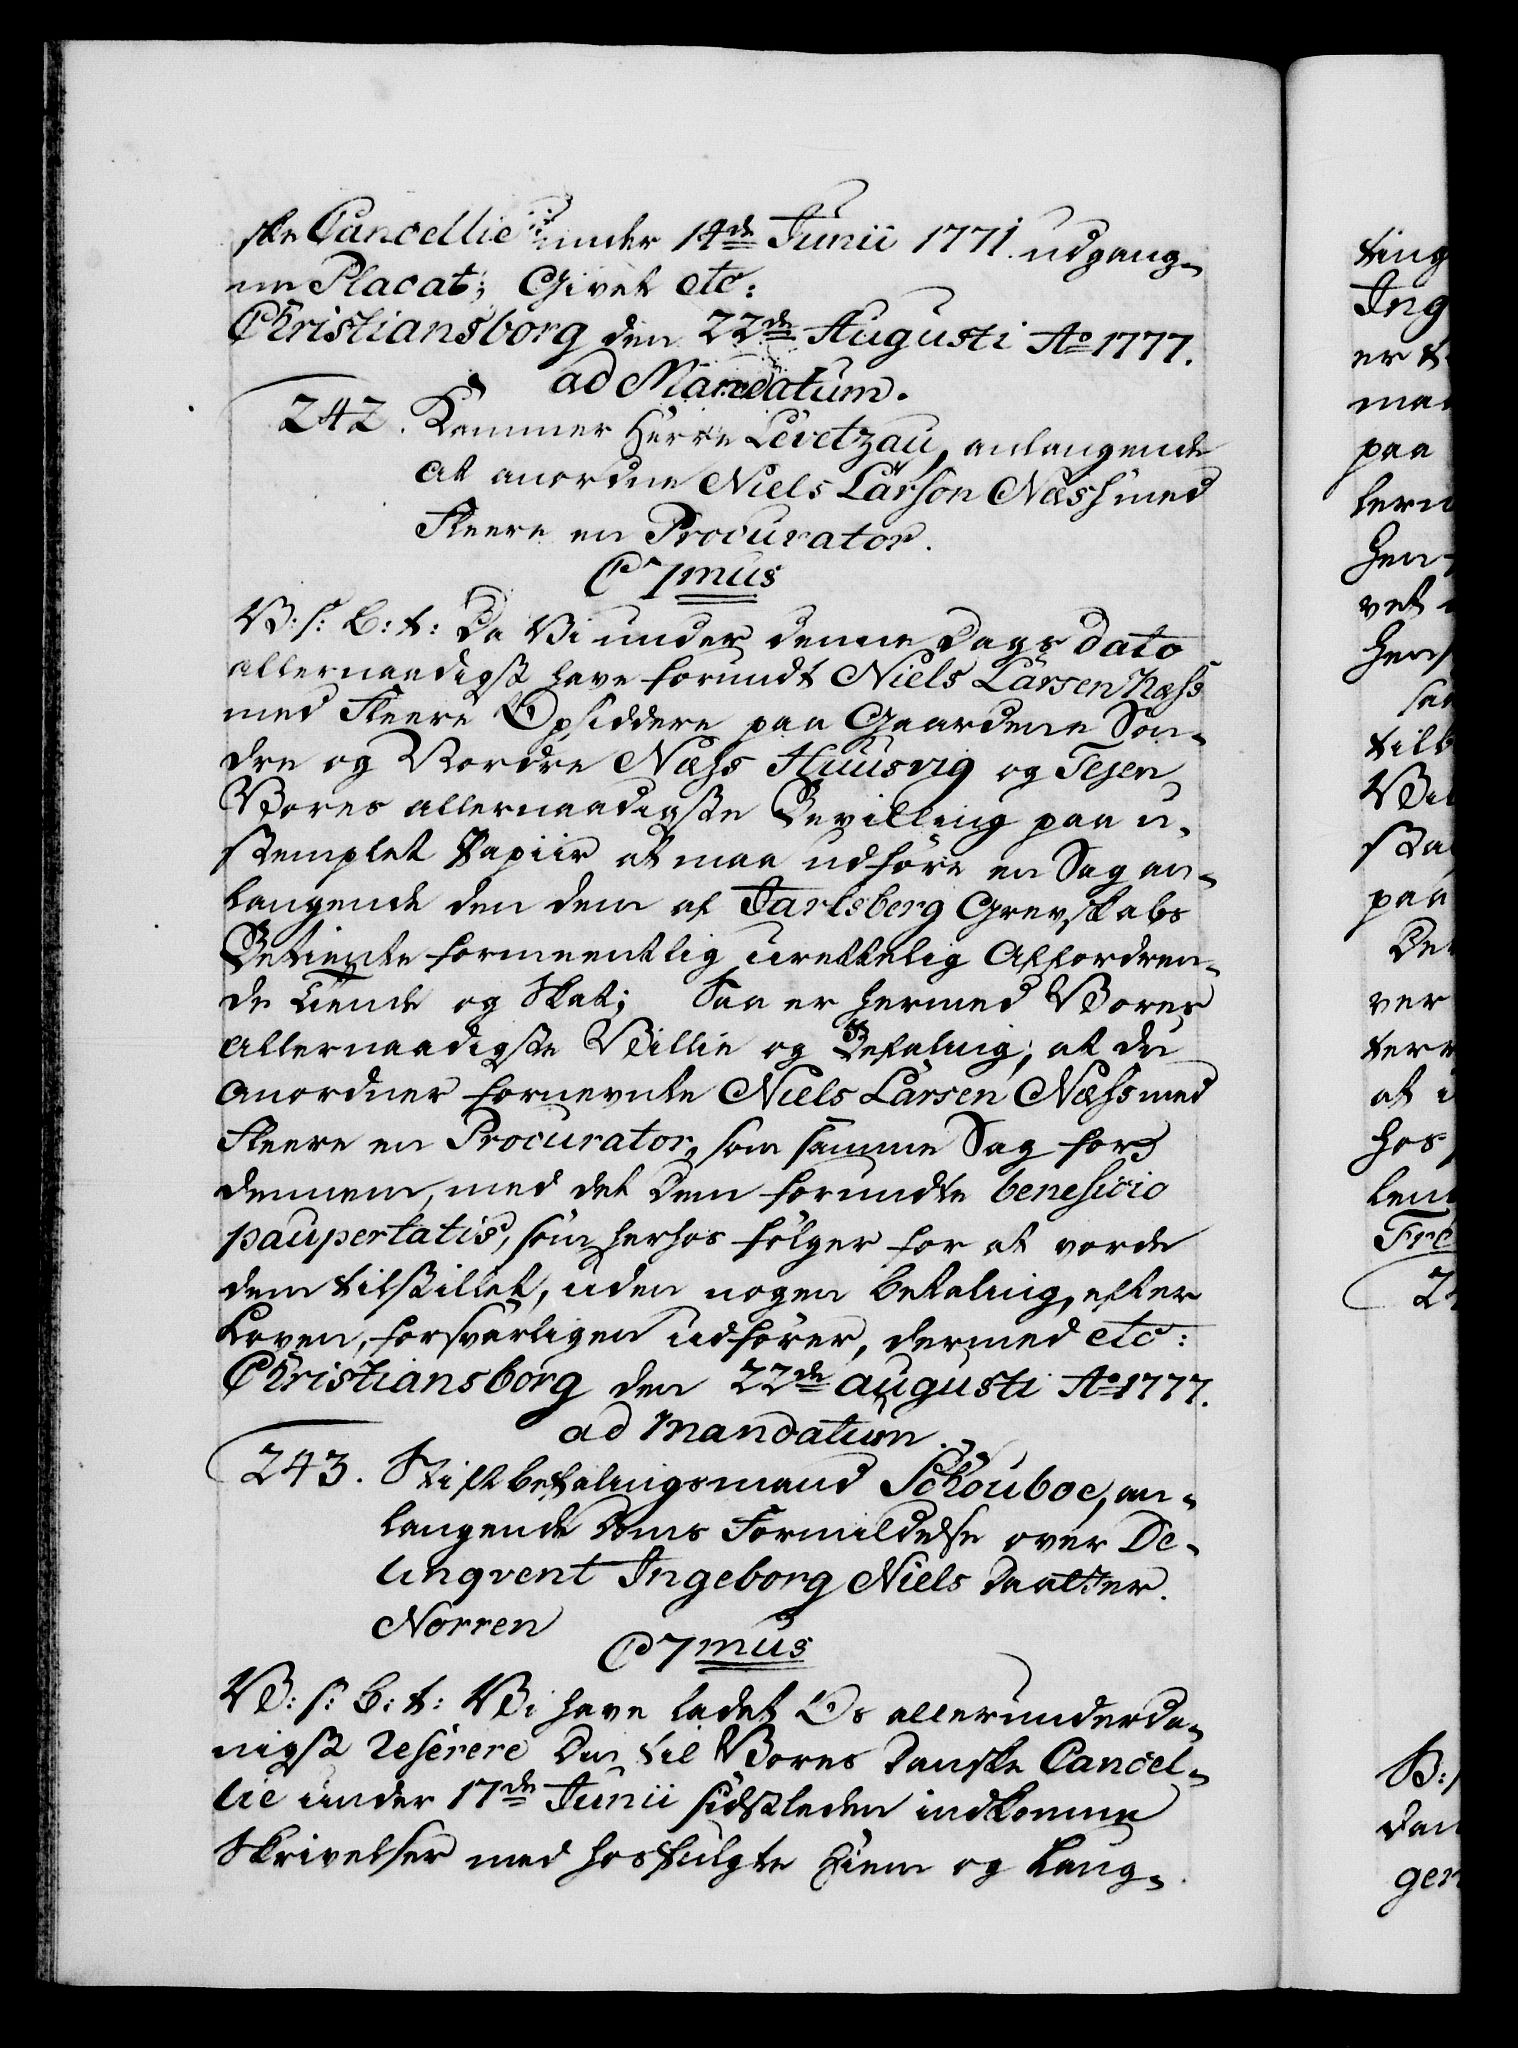 ske Cancellie under 14de Junii 1771. udgang-
ne Placat; Givet etc:
Christiansborg den 22de Augusti Ao 1777.
ad Mandatum.
242. Kammer Herre Levetzau, anlangende
at anordne Niels Larson Næss med
Fleere en Procurator.
C7mus
V: s: G: t: Da Vi under denne Dags dato
allernaadigst have forundt Niels Larsen Næss
med Fleere Opsiddere paa Gaardene Søn-
dre og Nordre Næss Huusvig og Tejen
Vores allernaadigste Bevilling paa u-
stemplet Papiir at maa udføre en Sag an-
langende den dem af Jarlsberg Grevskabs
Betiente formeentlig urettelig Affordren-
de Tiende og Skat; Saa er hermed Vores
allernaadigste Villie og Befaling, at du
anordner fornevnte Niels Larsen Næss med
Fleere en Procurator, som samme Sag for
dennem, med det dem forundte beneficio
paupertatis, som herhos følger for at vorde
dem tilstillet, uden nogen betaling, efter
Loven, forsvarligen udfører, dermed etc:
Christiansborg den 22de augusti Ao 1777.
ad mandatum.
243. Stiftbefalingsmand Schouboe, an-
langende Doms Formildelse over De-
linqvent Ingeborg Niels Daatter
Norren
C7mus
V: s: G: t: Vi have ladet Os allerunderda-
nigst referere Din til Vores Danske Cancel-
lie under 17de Junii sidstleden indkomne
Skrivelser med hosfulgte Hiem og Laug-
ting
Ing
er t
maa
paa
vet
tilb
paa
Det
ver
at i
hos
Fre
24
V: s
dan
gen